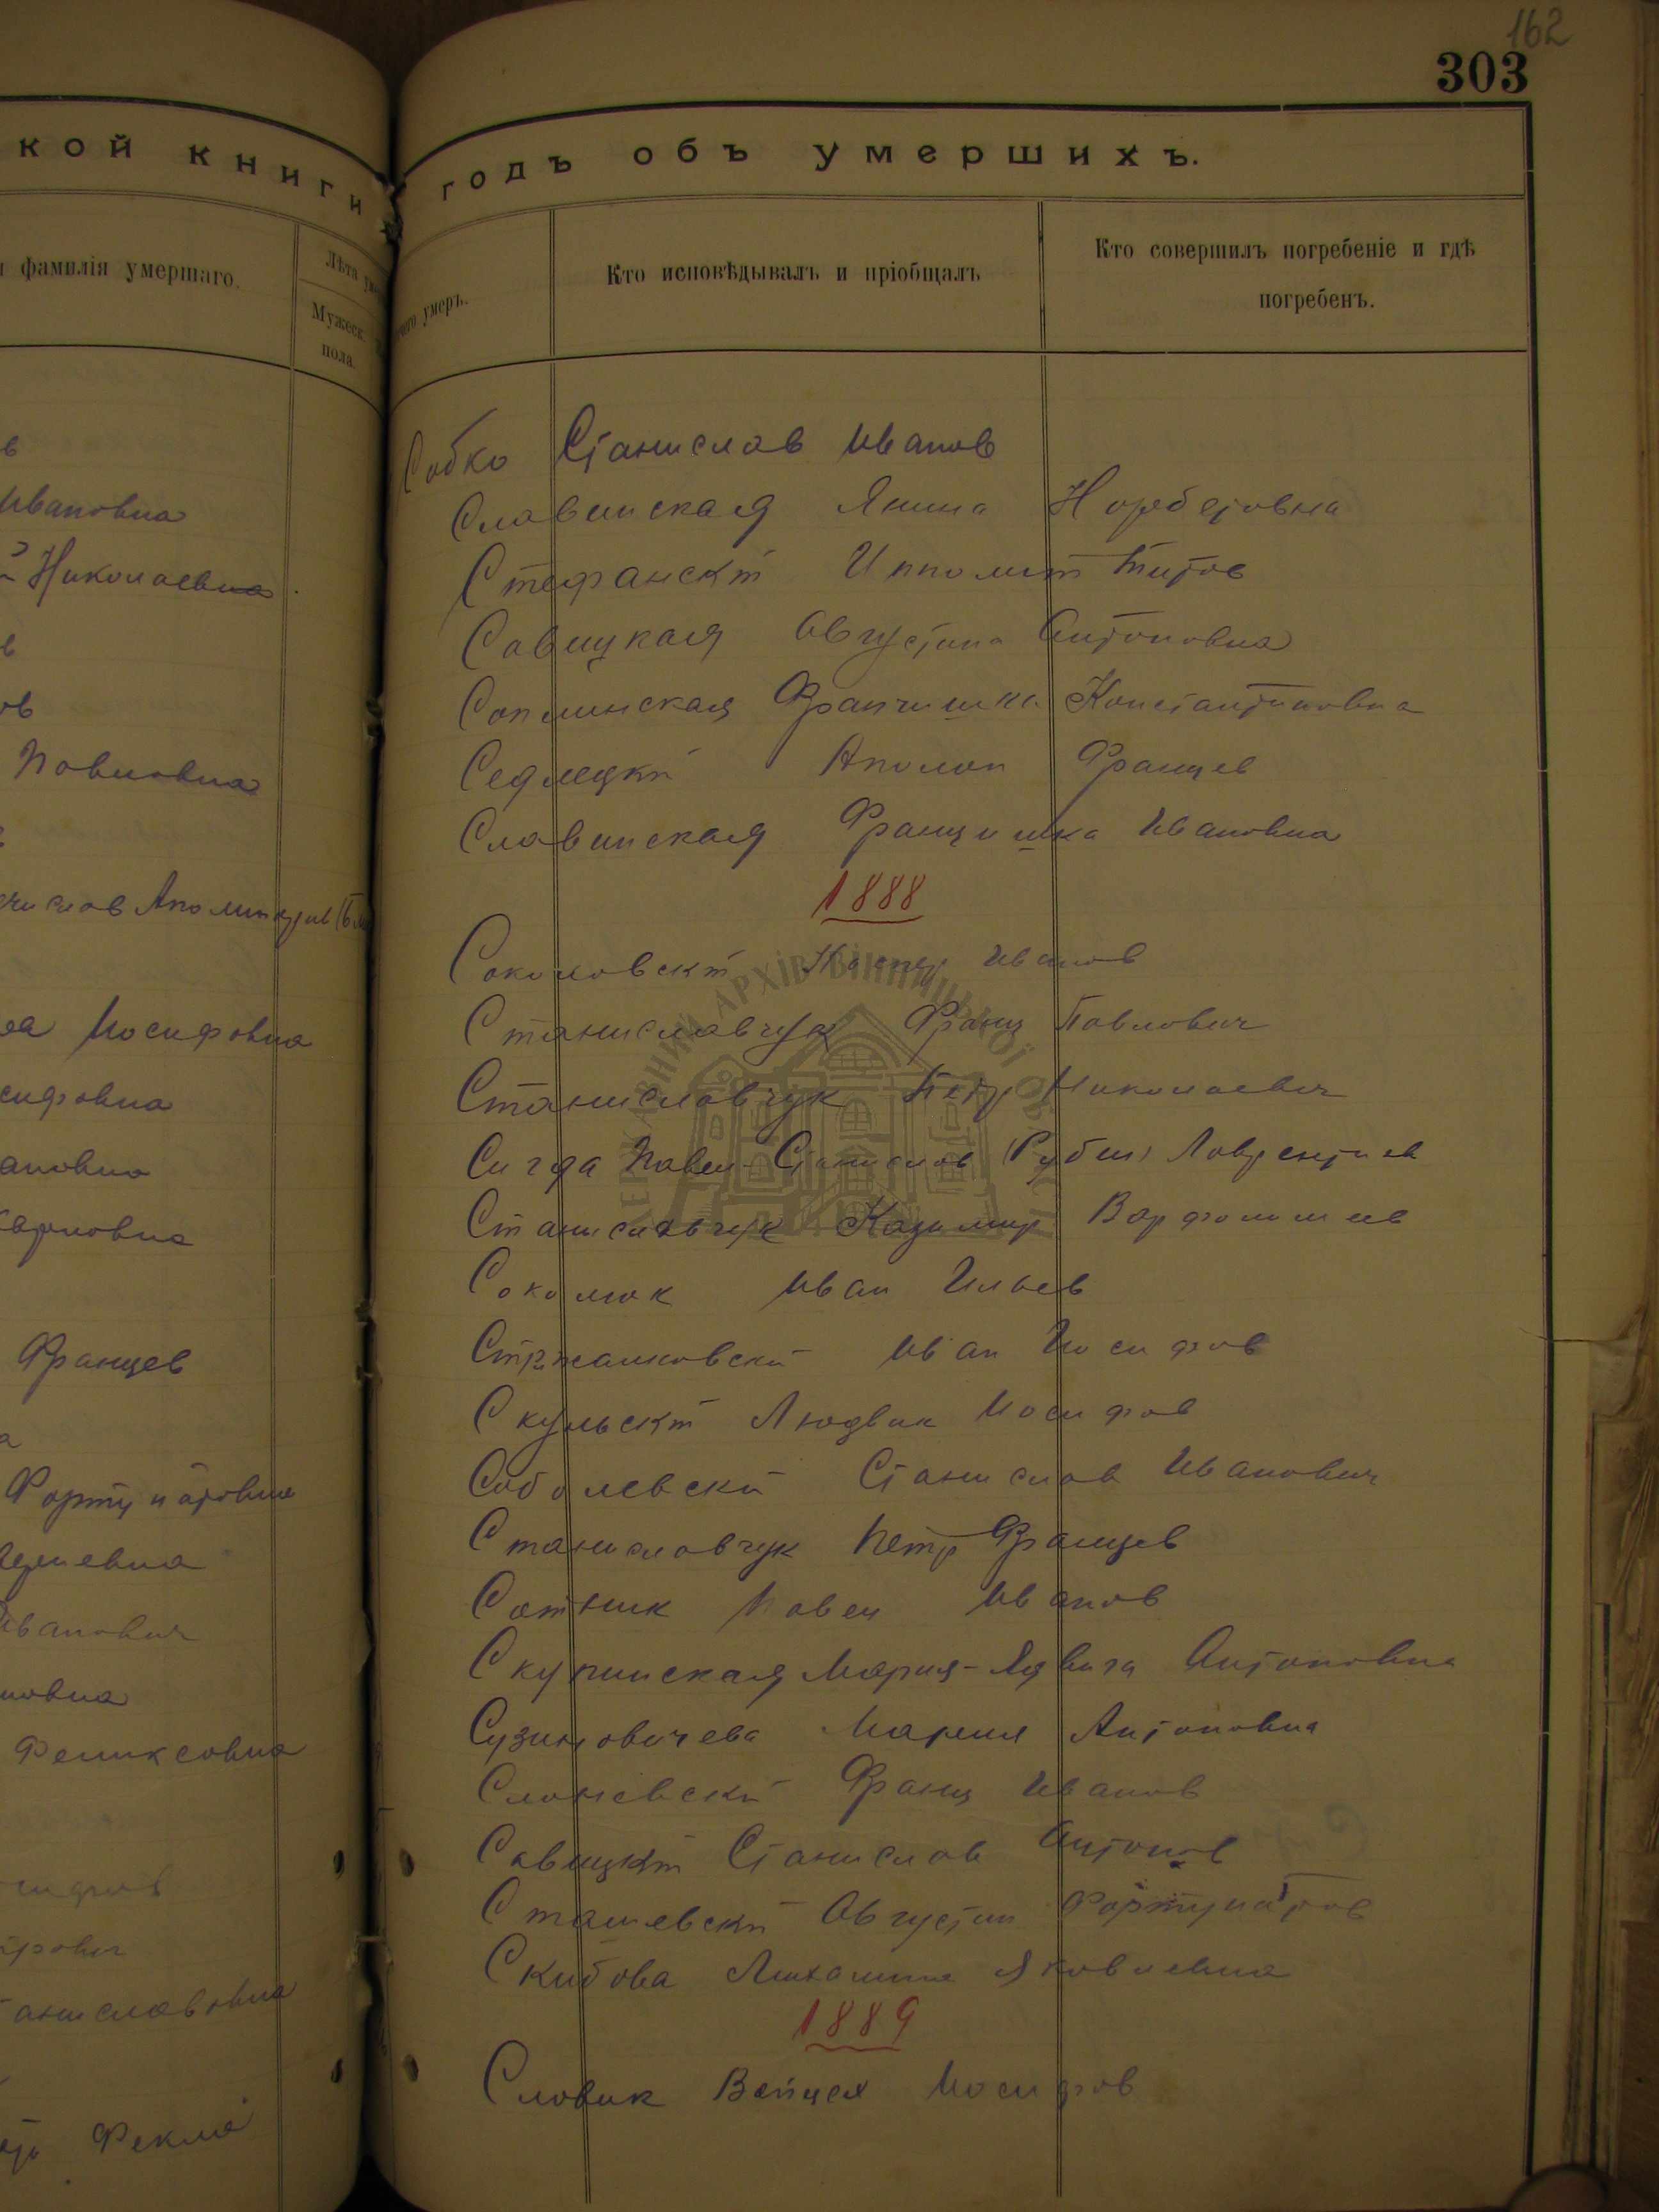 162
303
кой книги
годъ объ умершихъ.
фамилія умершаго.
Лѣта
Мужеск.
пола.
чего умеръ.
Кто исповѣдывалъ и пріобщалъ
Кто совершилъ погребеніе и гдѣ
погребенъ.
Ивановна
Николаевна
Павловна
Иосифовна
Францев
Феликсовна
Фекла
Собко Станислав Иванов
Славинская Янина Норбертовна
Стефанский Ипполит Титов
Савицкая Августина Антоновна
Соплинская Франчишка Константиновна
Седлецкий Аполон Францев
Славинская Францишка Ивановна
1888
Соколовский Каспер Иванов
Станиславчук Франц Павлович
Станиславчук Петр Николаевич
Сигда Павел-Станислав (Рубин) Лаврентиев
Станиславчук Казимир Варфоломеев
Соколюк Иван Ильев
Стржалковский Иван Иосифов
Скульский Людвик Иосифов
Соболевский Станислав Иванович
Станиславчук Петр Францев
Сотник Павел Иванов
Скупинская Мария-Ядвига Антоновна
Сузиновичева Мария Антоновна
Слоневский Франц Иванов
Савицкий Станислав Антонов
Сташевский Августин Фортунатов
Скибова Михалина Яковлевна
1889
Словик Войцех Иосифов
ДЕРЖАВНИЙ АРХІВ ВІННИЦЬКОЇ ОБЛАСТІ